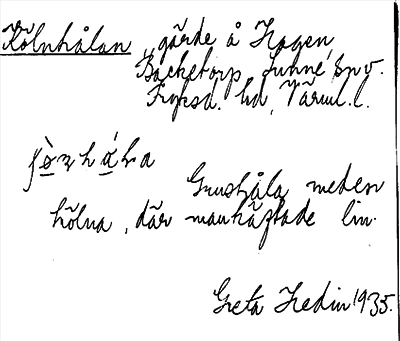 Kölnhålan, gärde å Hagen,
Backetorp, Sunne, spv.
Fryksd. hd, Värml. l.
Grushåla med en
kölna, där man häftade lin.
Greta Hedin 1935.